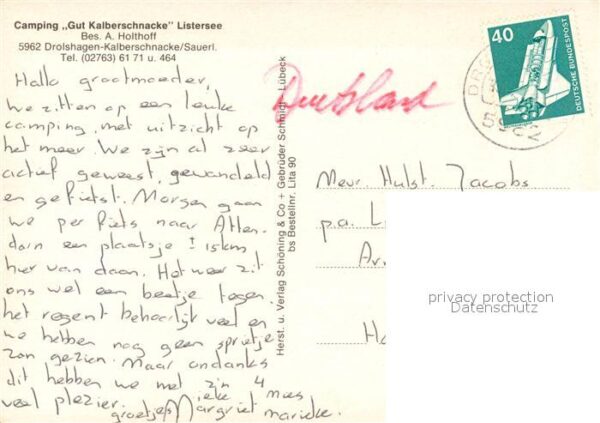 Camping „Gut Kalberschnacke" Listersee
Bes. A. Holthoff
5962 Drolshagen-Kalberschnacke/Sauerl.
Tel. (02763) 61 71 u. 464
Hallo grootmoeder,
we zitten op een leuke
camping, met uitzicht op
het meer. We zijn al zeer
actief geweest, gewandeld
en gefietst. Morgen gaan
we per fiets naar Atten-
dorn een plaatsje ± 15km
hier van daan. Het weer zit
ons wel een beetje tegen.
het regent behoorlijk veel en
we hebben nog geen sprietje
zon gezien. Maar ondanks
dit hebben we met zijn 4
veel plezier.
groetjes
Mieke Mies
Margriet Marieke.
Herst. u. Verlag Schöning & Co + Gebrüder Schmidt, Lübeck
bs Bestellnr. Lita 90
Duitsland
40
DEUTSCHE BUNDESPOST
5962
Mevr. Hulst. Jacobs
p.a. L
Ar.
Ha
privacy protection
Datenschutz